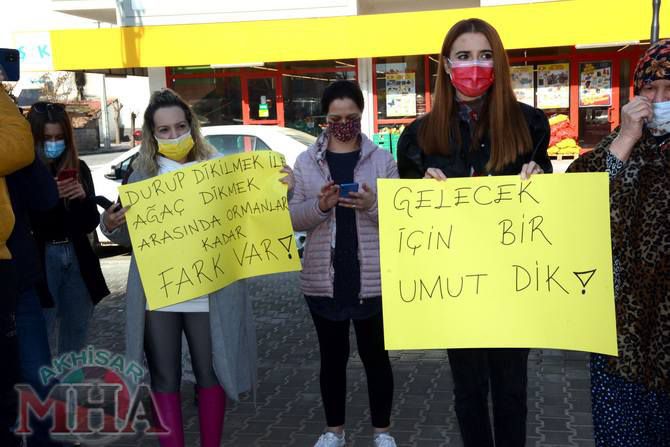 DURUP DİKİLMEK İLE
AĞAÇ DİKMEK
ARASINDA ORMANLAR
KADAR
FARK VAR!
GELECEK
İÇİN BİR
UMUT DİK!
AKHİSAR
MHA